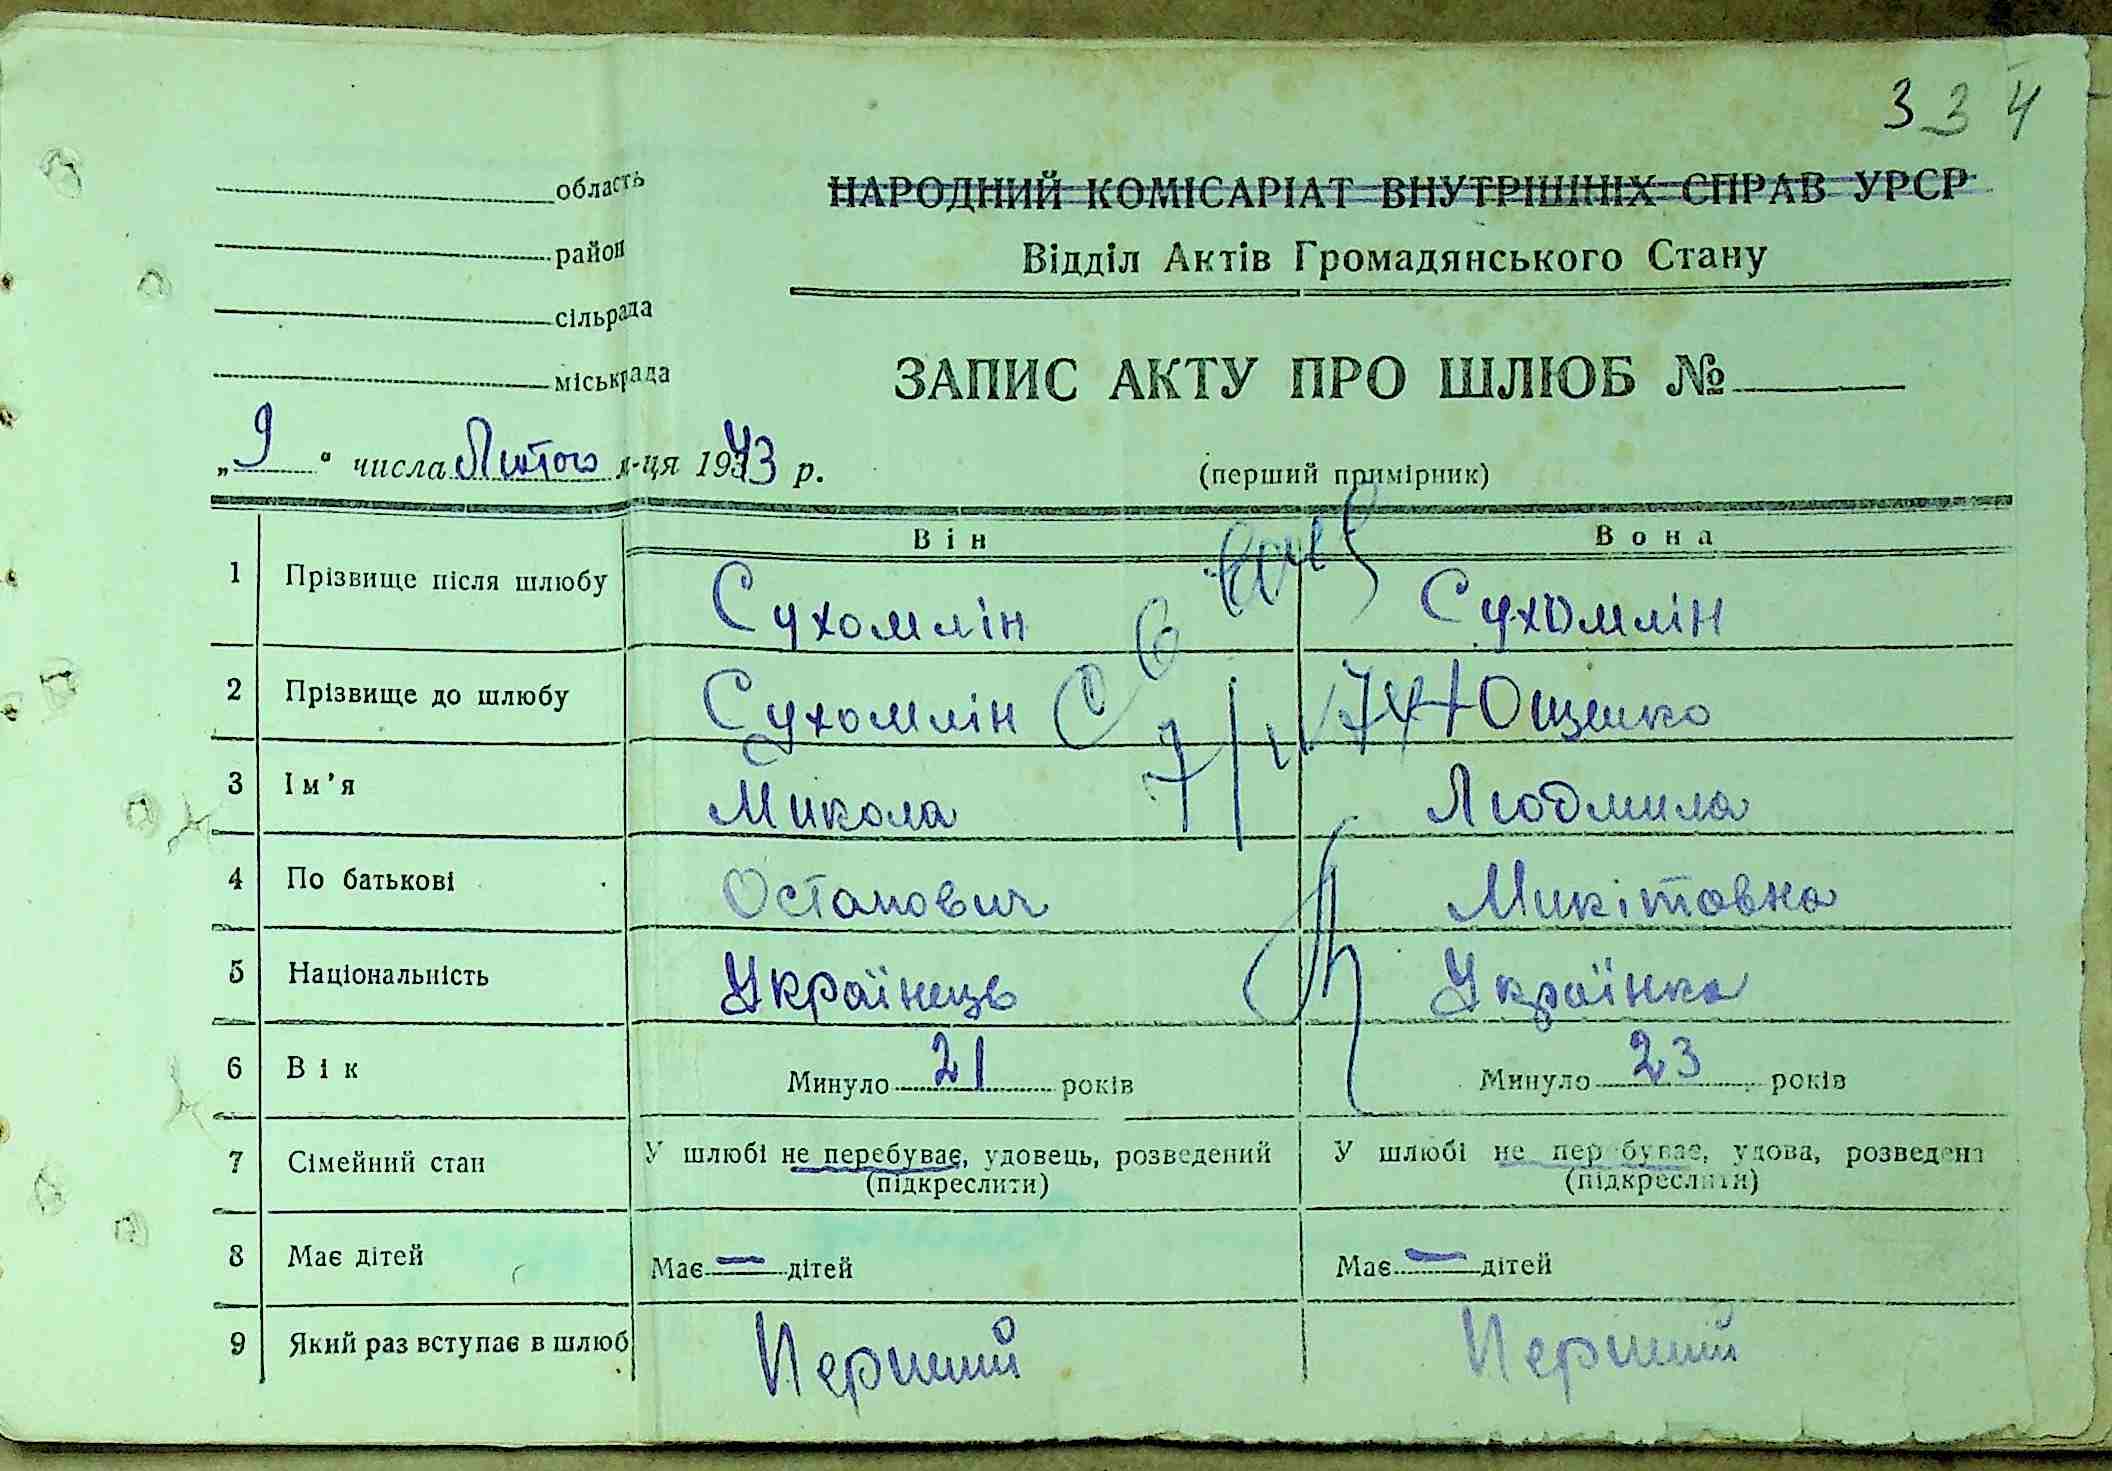 334
область
район
сільрада
міськрада
НАРОДНИЙ КОМІСАРІАТ ВНУТРІШНІХ СПРАВ УРСР
Відділ Актів Громадянського Стану
ЗАПИС АКТУ ПРО ШЛЮБ №
„9“ числа Лютого м-ця 1943 р.
(перший примірник)
Він Вона
1 Прізвище після шлюбу Сухомлін Сухомлін
2 Прізвище до шлюбу Сухомлін Ющенко
3 Ім'я Микола Людмила
4 По батькові Остапович Микітовна
5 Національність Українець Українка
6 Вік Минуло 21 років Минуло 23 років
7 Сімейний стан У шлюбі не перебуває, удовець, розведений У шлюбі не перебуває, удова, розведена
(підкреслити) (підкреслити)
8 Має дітей Має — дітей Має — дітей
9 Який раз вступає в шлюб Перший Перший